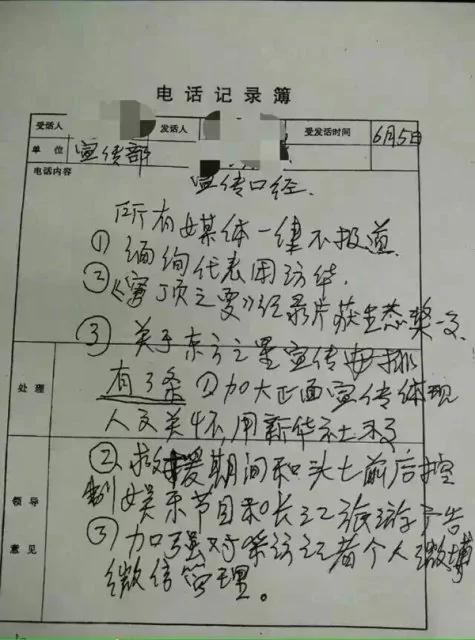 电话记录簿
受话人 发话人 受发话时间 6月5日
单位 宣传部
电话内容 宣传口经.
所有媒体一律不报道
① 缅甸代表团访华.
②《穹顶之 》纪录片获生态奖
③ 关于东方之星宣传安排
处理 有3条 ①加大正面宣传体现
人文关怀,用新华社
② 救援期间和头七前后控
领导 制娱乐节目和长江旅游广告
意见 ③ 加强对采访记者个人微博
微信管理。